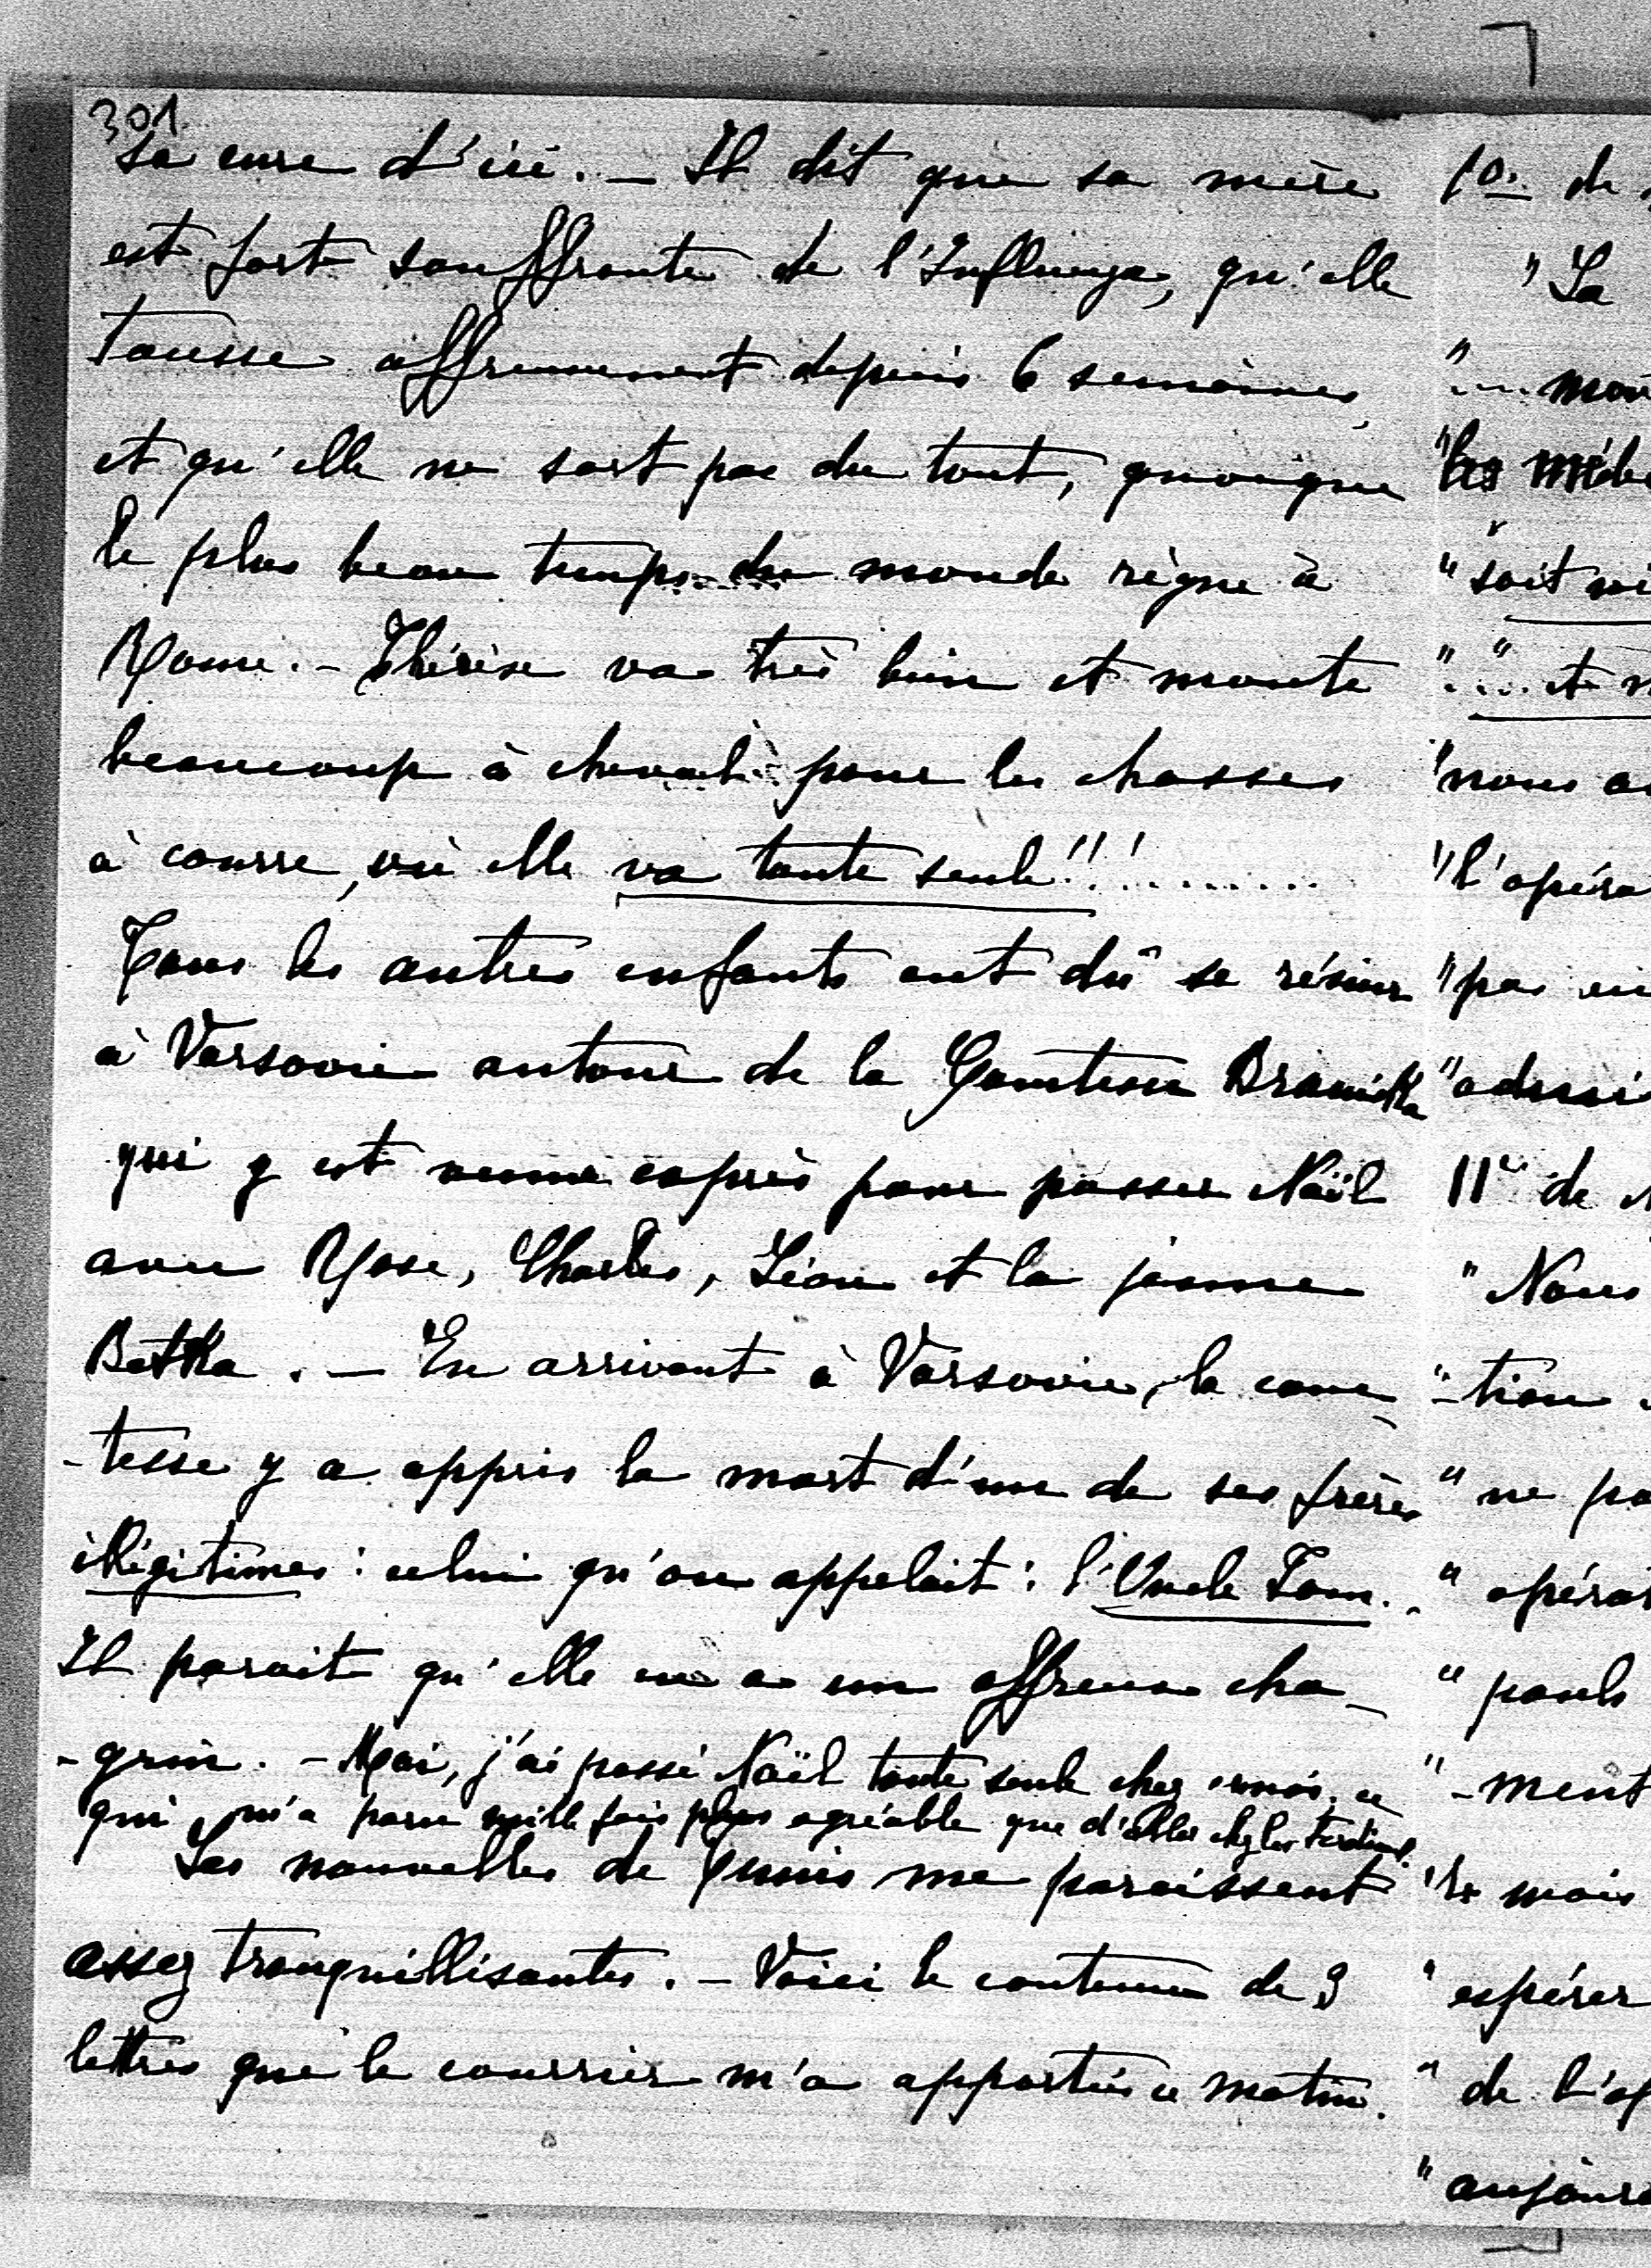 301
sa cure d'ici. — Il dit que sa mère
est fort souffrante de l'Influenza, qu'elle
tousse affreusement depuis 6 semaines,
et qu'elle ne sort pas du tout, quoique
le plus beau temps du monde règne à
Rome. — Thérèse va très bien et monte
beaucoup à cheval pour les chasses
à courre, où elle va toute seule!!!..........
Tous les autres enfants ont dû se réunir
à Varsovie autour de la Comtesse Branicka
qui y est venue exprès pour passer Noël
avec Rose, Charles, Léon et la jeune
Betka. — En arrivant à Varsovie, la com
-tesse y a appris la mort d'un de ses frères
illégitimes : celui qu'on appelait : l'Oncle Tom..
Il parait qu'elle en a un affreux cha-
-grin. — Moi, j'ai passé Noël toute seule chez moi, ce
qui m'a paru mille fois plus agréable que d'aller chez les
Les nouvelles de me paraissent
assez tranquillisantes. — Voici le contenu de 3
lettres que le courrier m'a apportées ce matin.
10: de
" La
"....
"
" soit
"..... et
"nous
"l'opéra
"pas
"
11" de
" Nous
"-tion
" ne
" opérat
"
"-ment
" mois
" espérer
" de l'op
" aujourd